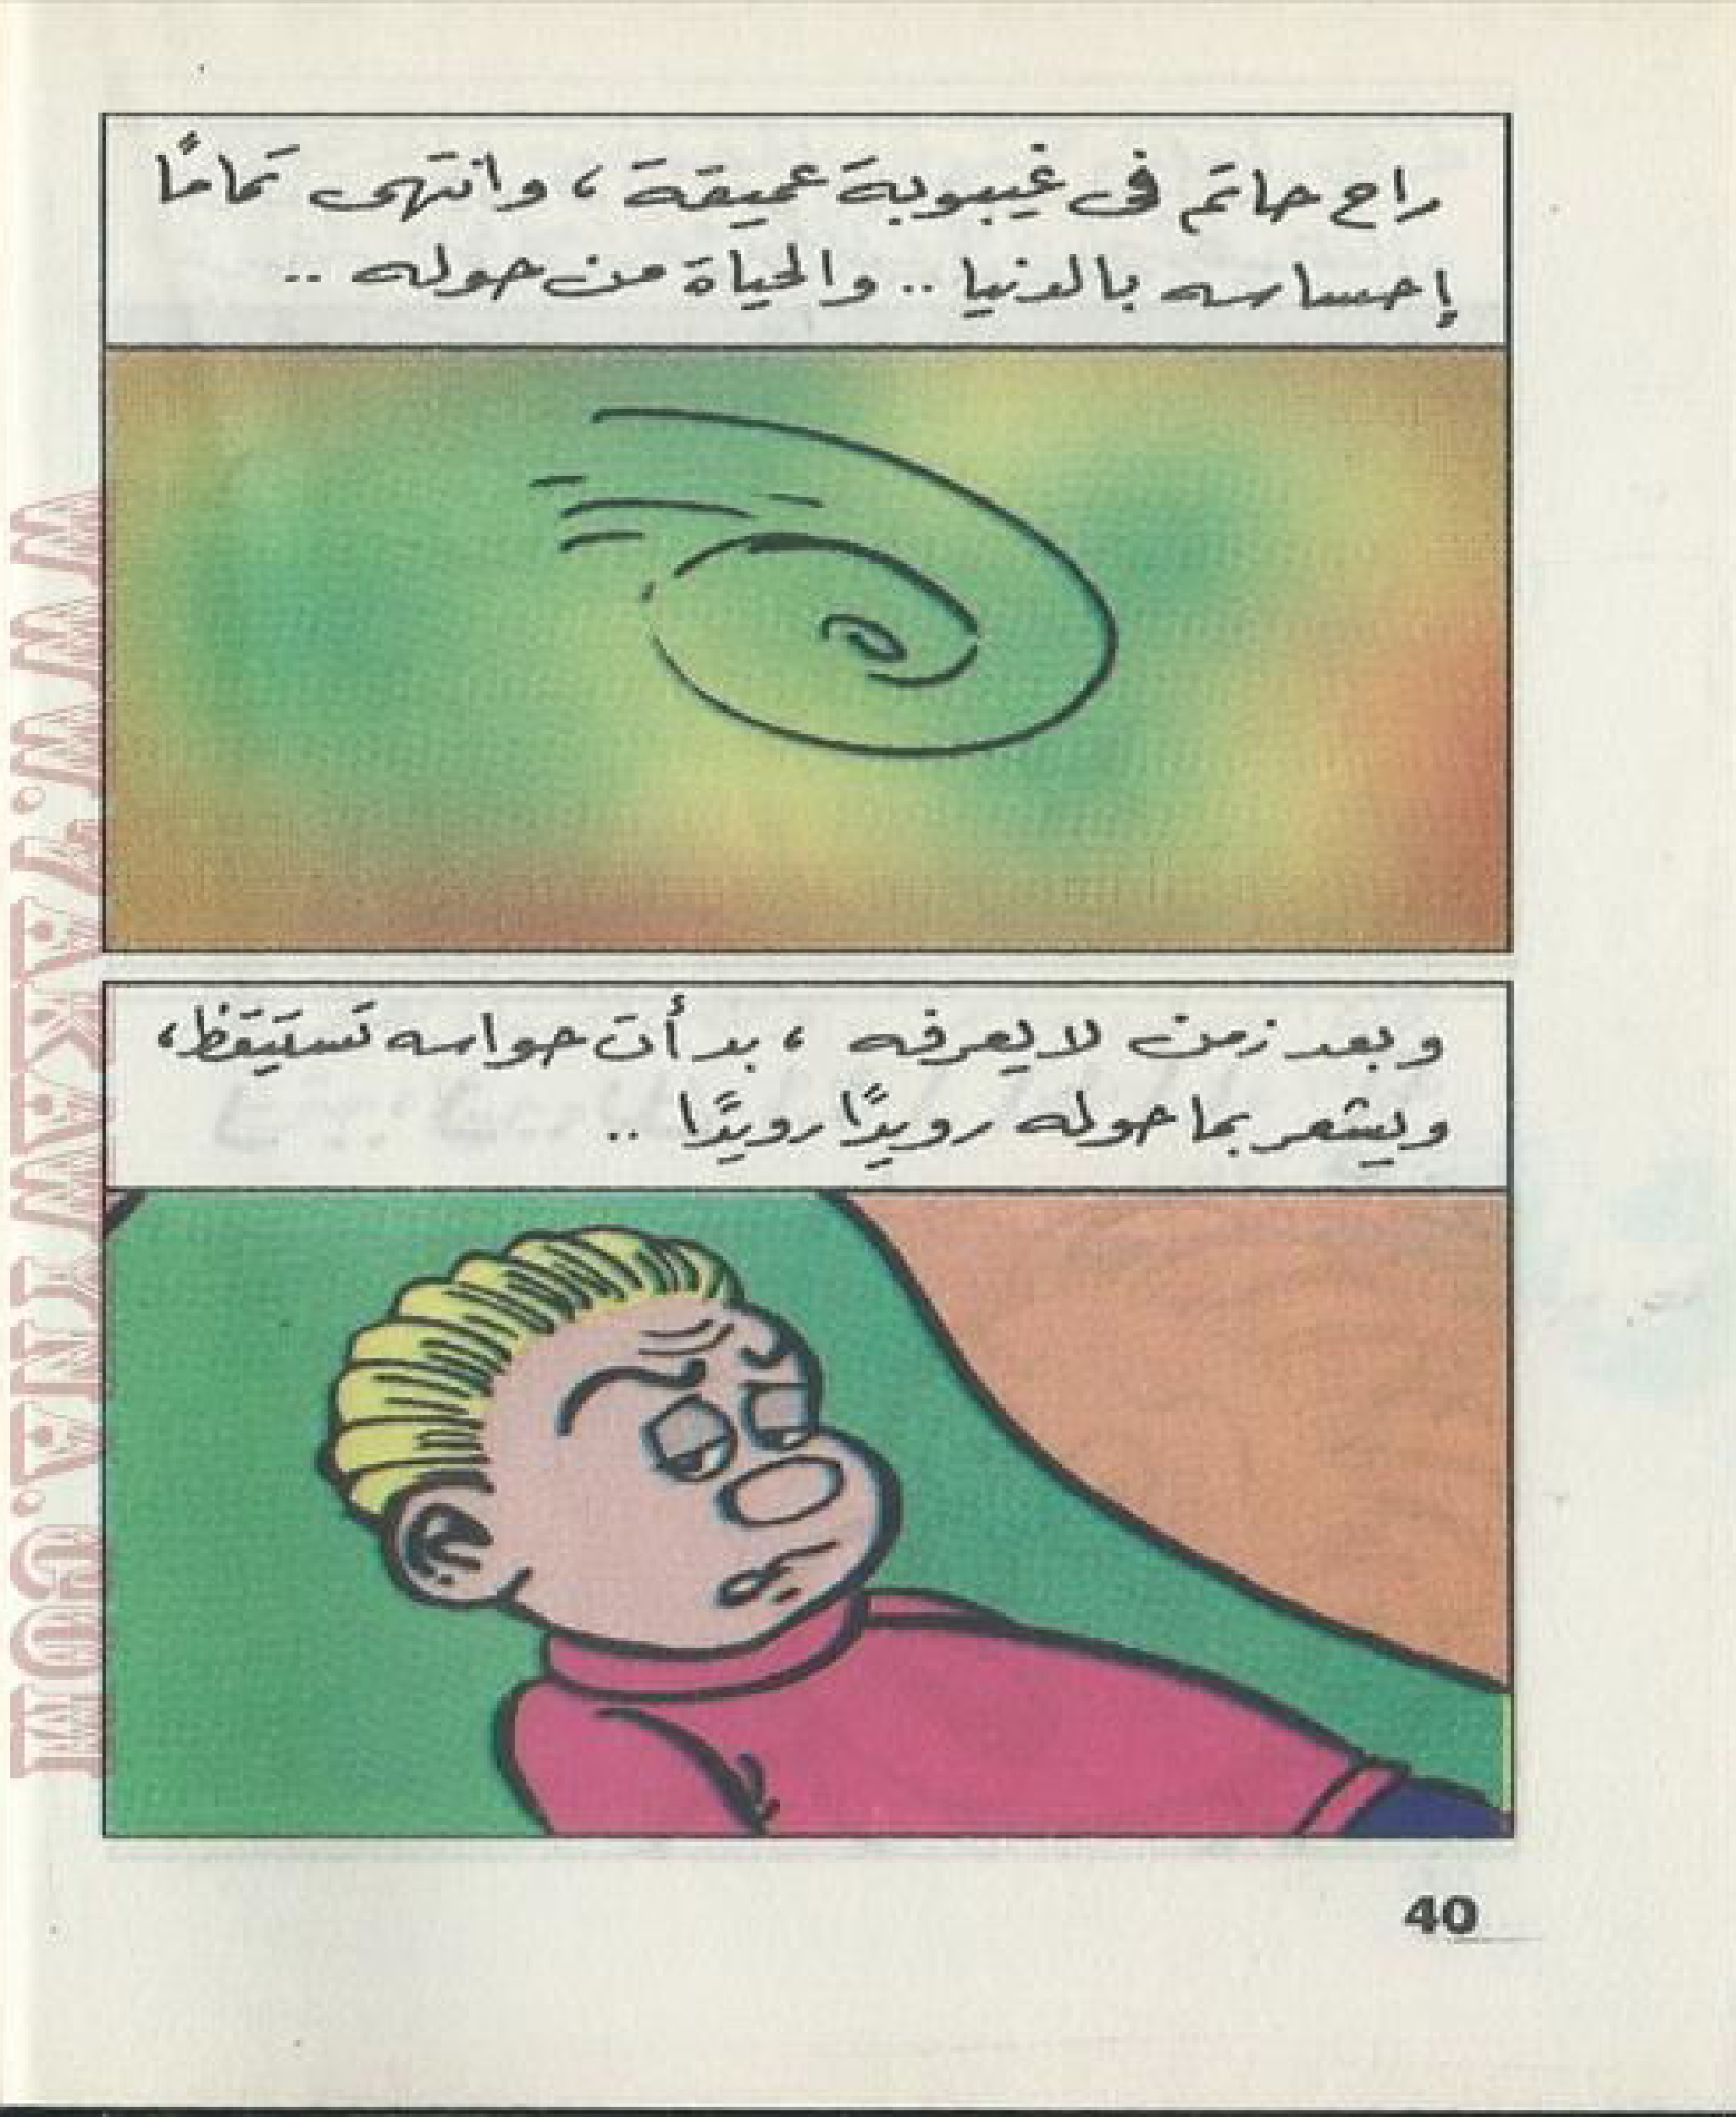 راح حاتم فى غيبوبة عميقة ، وانتهى تمامًا
إحساسه بالدنيا .. والحياة من حوله ..
وبعد زمن لا يعرفه ، بدأت حواسه تستيقظ ،
ويشعر بما حوله رويدًا رويدًا ..
40
WWW.7AKAWITNA.COM